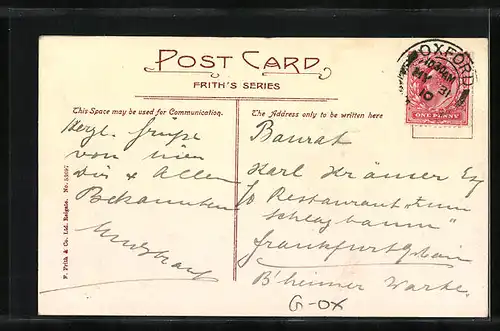 POST CARD
FRITH'S SERIES
This Space may be used for Communication.
The Address only to be written here
OXFORD
10.30AM
MY 31
10
ONE PENNY
Herzl. Grüße
von hier
Dir & Allen
Bekannten
Baurat
Karl Krämer Esq
Restaurant "zum
Schlagbaum"
Frankfurt
B'heimer Warte.
G-OX
F. Frith & Co. Ltd. Reigate.